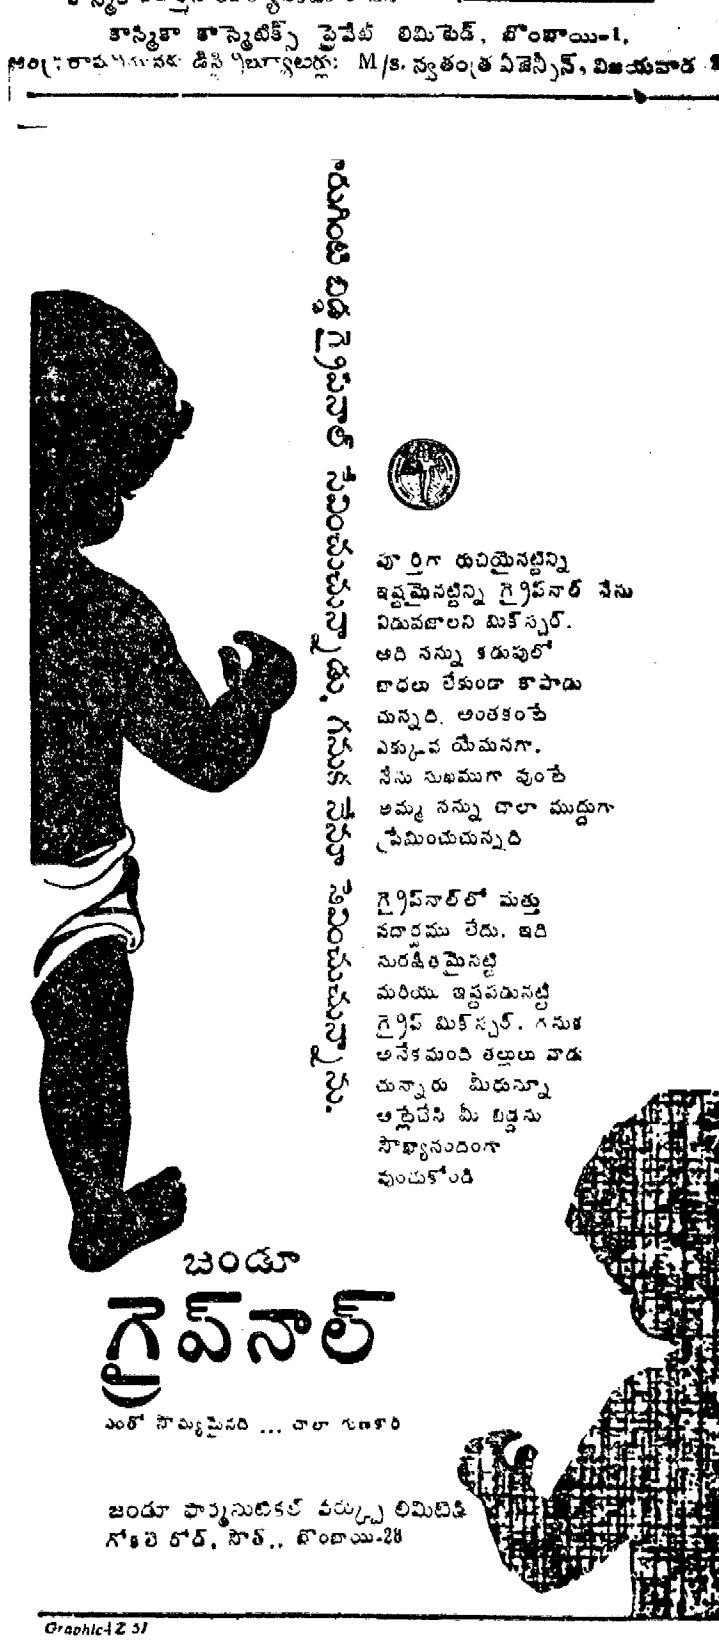 కాస్మికా కాస్మెటిక్స్ ప్రైవేట్ లిమిటెడ్, బొంబాయి-1.
డిస్ట్రిబ్యూటర్లు: M/s. స్వతంత్ర ఏజెన్సీస్, విజయవాడ
బిడ్డ గ్రైప్‌నాల్ సేవించుచున్నాడు, గనుక నేనూ సేవించుచున్నాను.
పూర్తిగా రుచియైనట్టిన్ని
ఇష్టమైనట్టిన్ని గ్రైప్‌నాల్ నేను
విడువజాలని మిక్స్చర్.
అది నన్ను కడుపులో
బాధలు లేకుండా కాపాడు
చున్నది. అంతకంటే
ఎక్కువ యేమనగా,
నేను సుఖముగా వుంటే
అమ్మ నన్ను చాలా ముద్దుగా
ప్రేమించుచున్నది
గ్రైప్‌నాల్‌లో మత్తు
పదార్థము లేదు. ఇది
సురక్షితమైనట్టి
మరియు ఇష్టపడునట్టి
గ్రైప్ మిక్స్చర్. గనుక
అనేకమంది తల్లులు వాడు
చున్నారు మీరున్నూ
అట్లేచేసి మీ బిడ్డను
సౌఖ్యానందంగా
వుంచుకోండి
జండూ
గ్రైప్‌నాల్
ఎంతో సౌమ్యమైనది ... చాలా గుణకారి
జండూ ఫార్మసుటికల్ వర్క్సు లిమిటెడ్
గోకలె రోడ్, సౌత్,, బొంబాయి-28